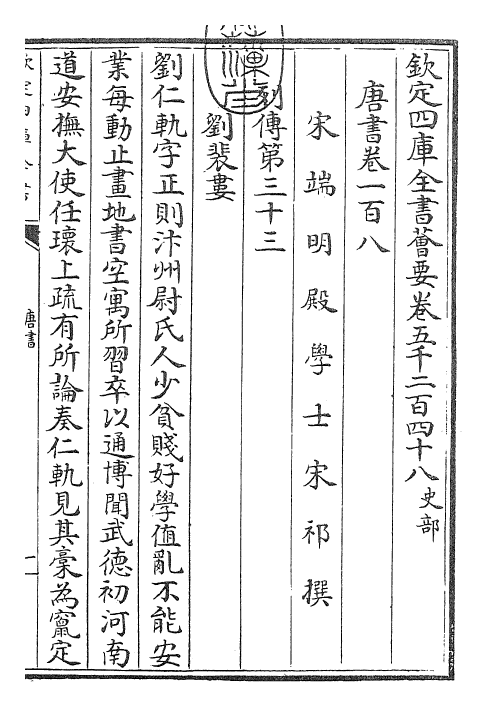 欽定四庫全書薈要卷五千二百四十八史部
唐書卷一百八
宋端明殿學士宋祁撰
列傳第三十三
劉裴婁
劉仁軌字正則汴州尉氏人少貧賤好學值亂不能安
業每動止畫地書空寓所習卒以通博聞武德初河南
道安撫大使任瓌上疏有所論奏仁軌見其稾為竄定
唐書